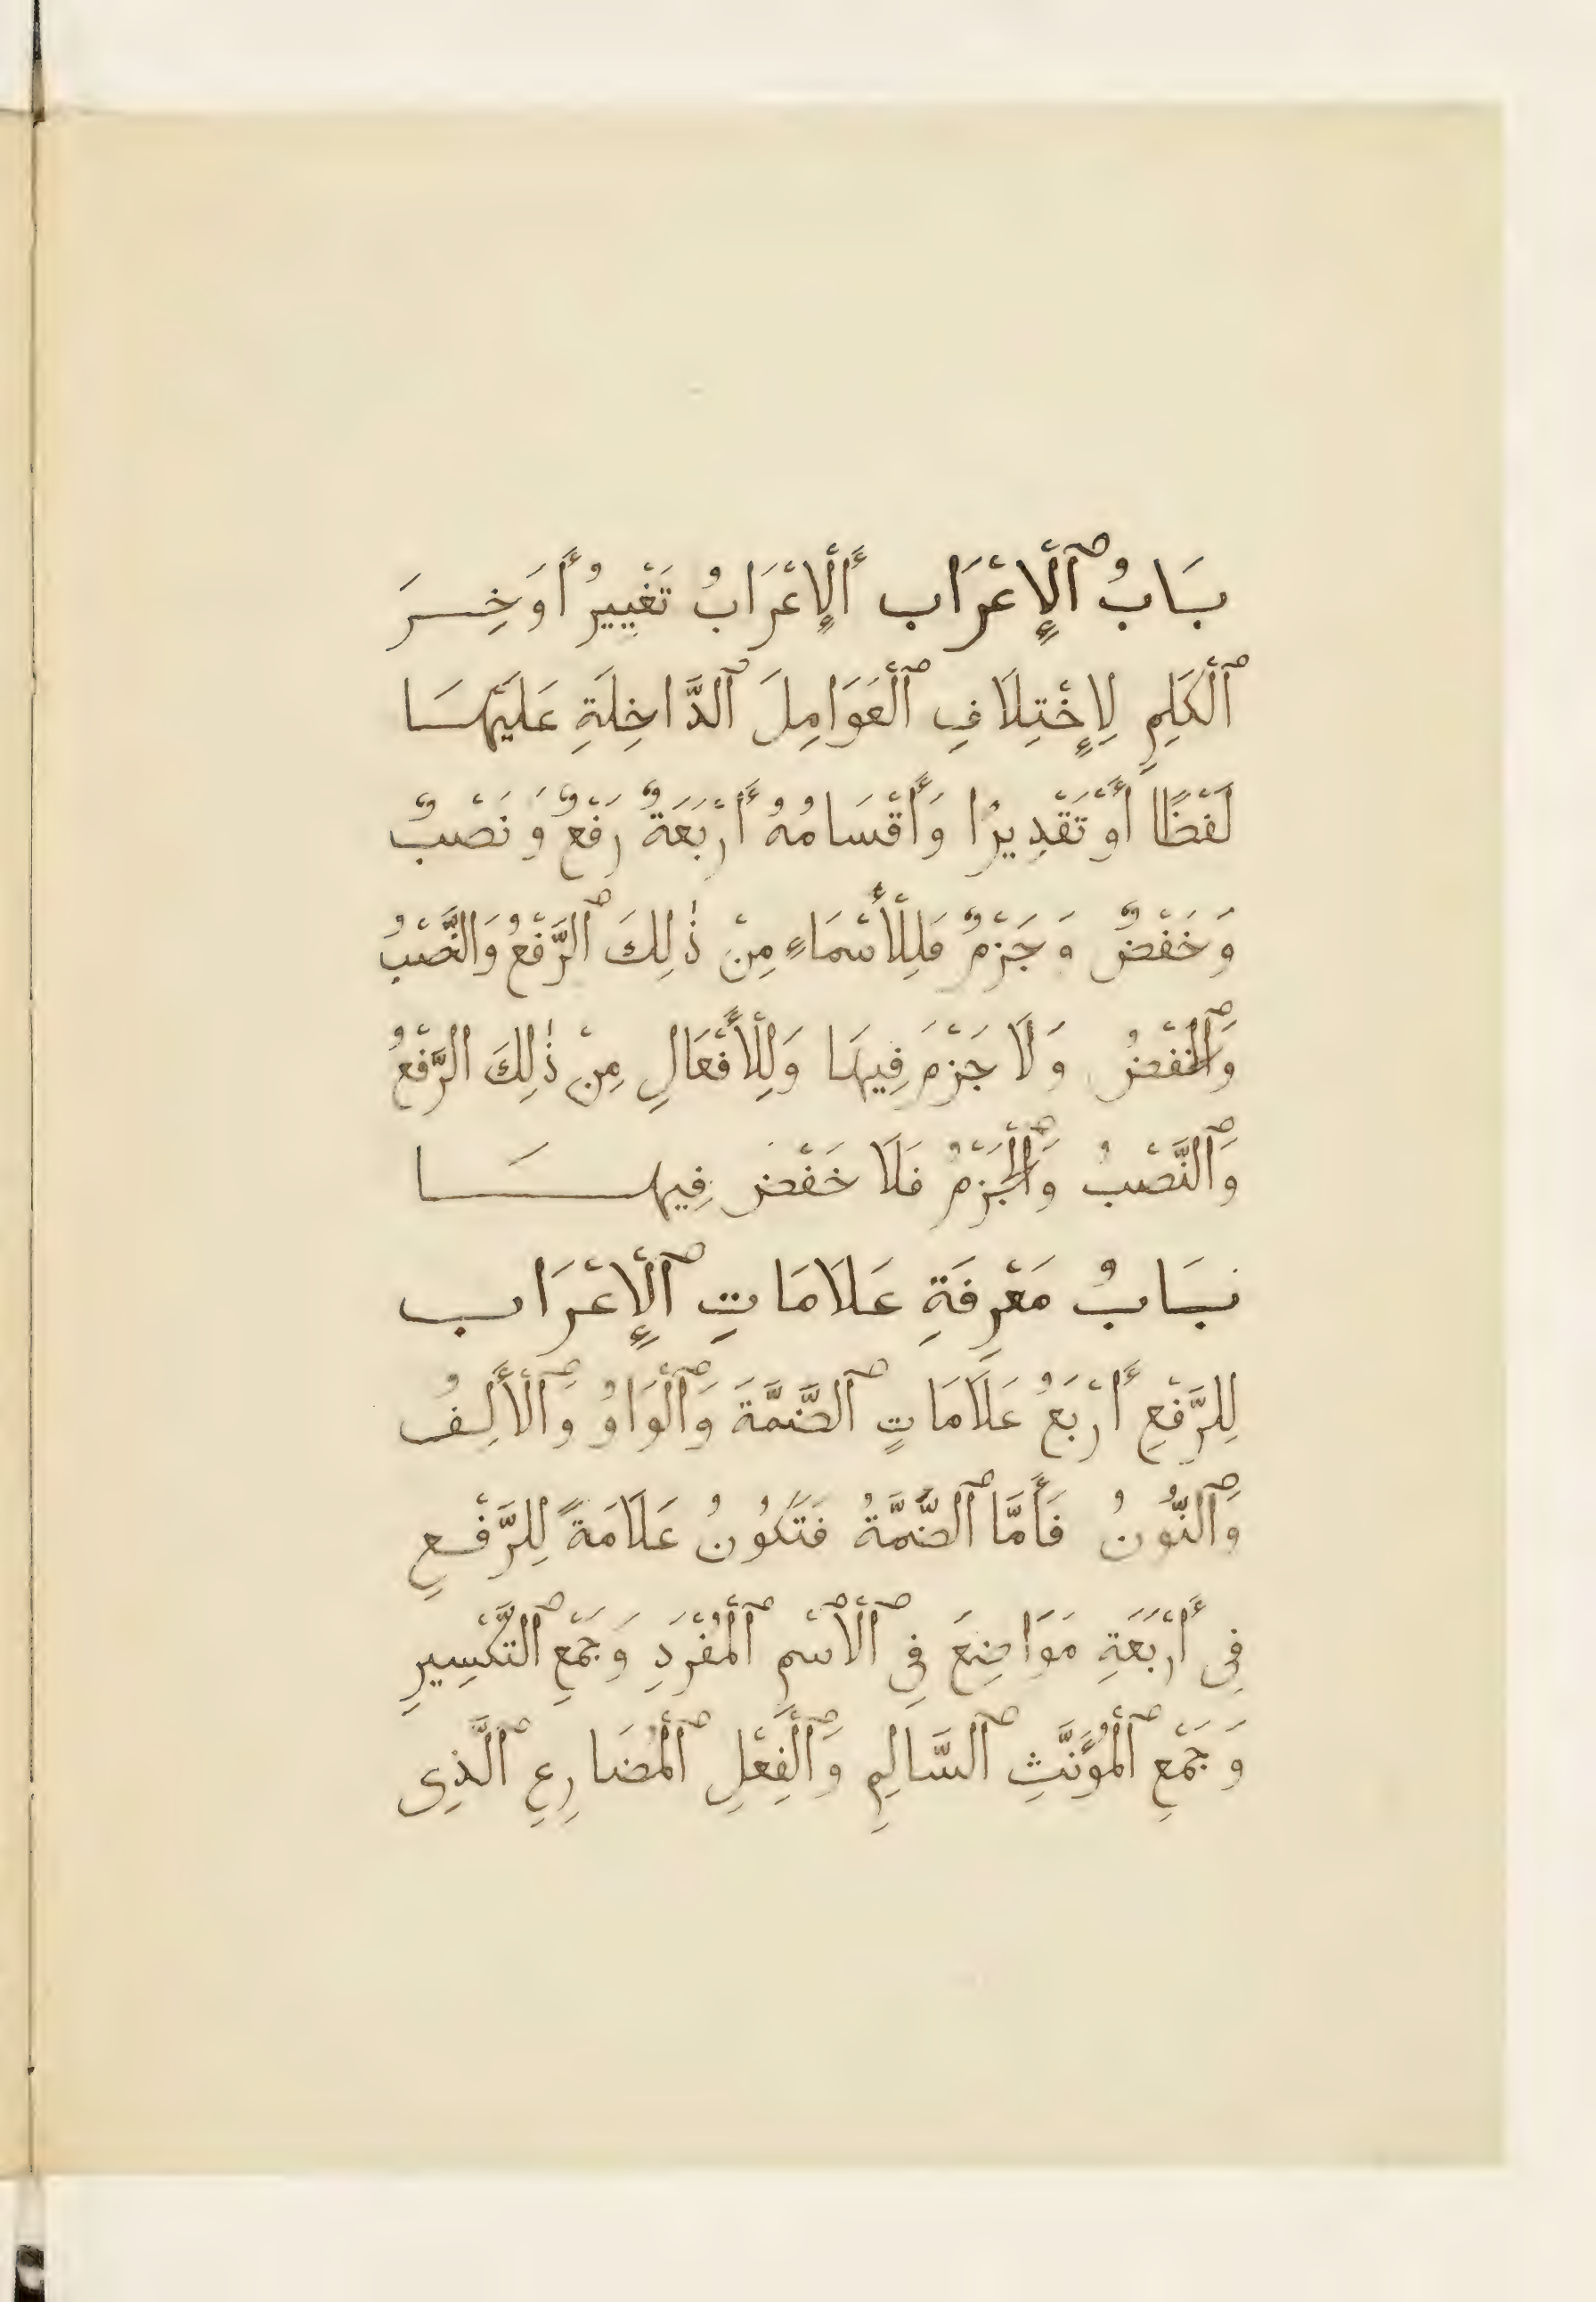 بَابُ ٱلْإِعْرَاب أَلْإِعْرَابُ تَغْيِيرُ أَوَخِرَ
ٱلْكَلِمِ لِإِخْتِلَافِ ٱلْعَوَامِلَ ٱلدَّاخِلَةِ عَلَيْهَا
لَفْظًا أَوْ تَقْدِيرًا وَأَقْسَامُهُ أَرْبَعَةٌ رَفْعٌ وَ نَصْبٌ
وَ خَفْضٌ وَ جَزْمٌ فَلِلْأَسْمَاءِ مِنْ ذٰلِكَ ٱلرَّفْعُ وَالنَّصْبُ
وَٱلْخَفْضُ وَلَا جَزْمَ فِيهَا وَلِلْأَفْعَالِ مِنْ ذٰلِكَ الرَّفْعُ
وَٱلنَّصْبُ وَٱلْجَزْمُ فَلَا خَفْضَ فِيهَا
بَابُ مَعْرِفَةِ عَلَامَاتِ ٱلْإِعْرَاب
لِلرَّفْعِ أَرْبَعُ عَلَامَاتٍ ٱلضَّمَّةَ وَٱلْوَاوُ وَٱلْأَلِفُ
وَٱلنُّونُ فَأَمَّا ٱلضَّمَّةُ فَتَكُونُ عَلَامَةً لِلرَّفْعِ
فِى أَرْبَعَةِ مَوَاضِعَ فِى ٱلْاسْمِ ٱلْمُفْرَدِ وَجَمْعِ ٱلتَّكْسِيرِ
وَ جَمْعِ ٱلْمُؤَنَّثِ ٱلسَّالِمِ وَٱلْفِعْلِ ٱلْمُضَارِعِ ٱلَّذِى